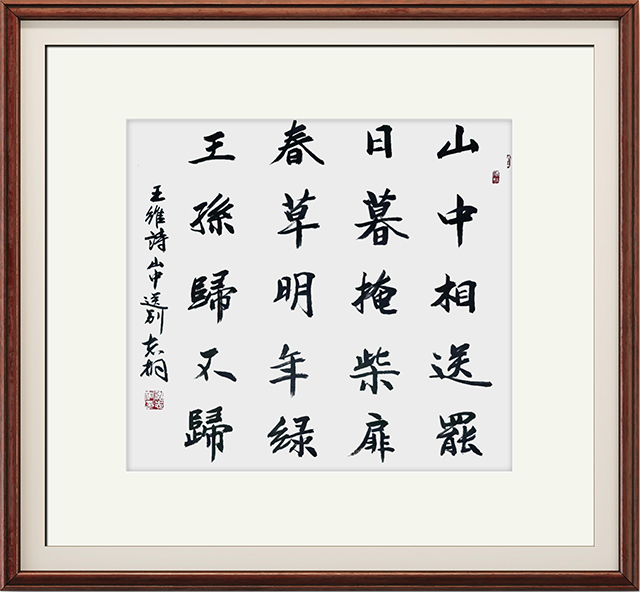 山中相送罷
日暮掩柴扉
春草明年绿
王孫歸不歸
王維詩山中送别志桐